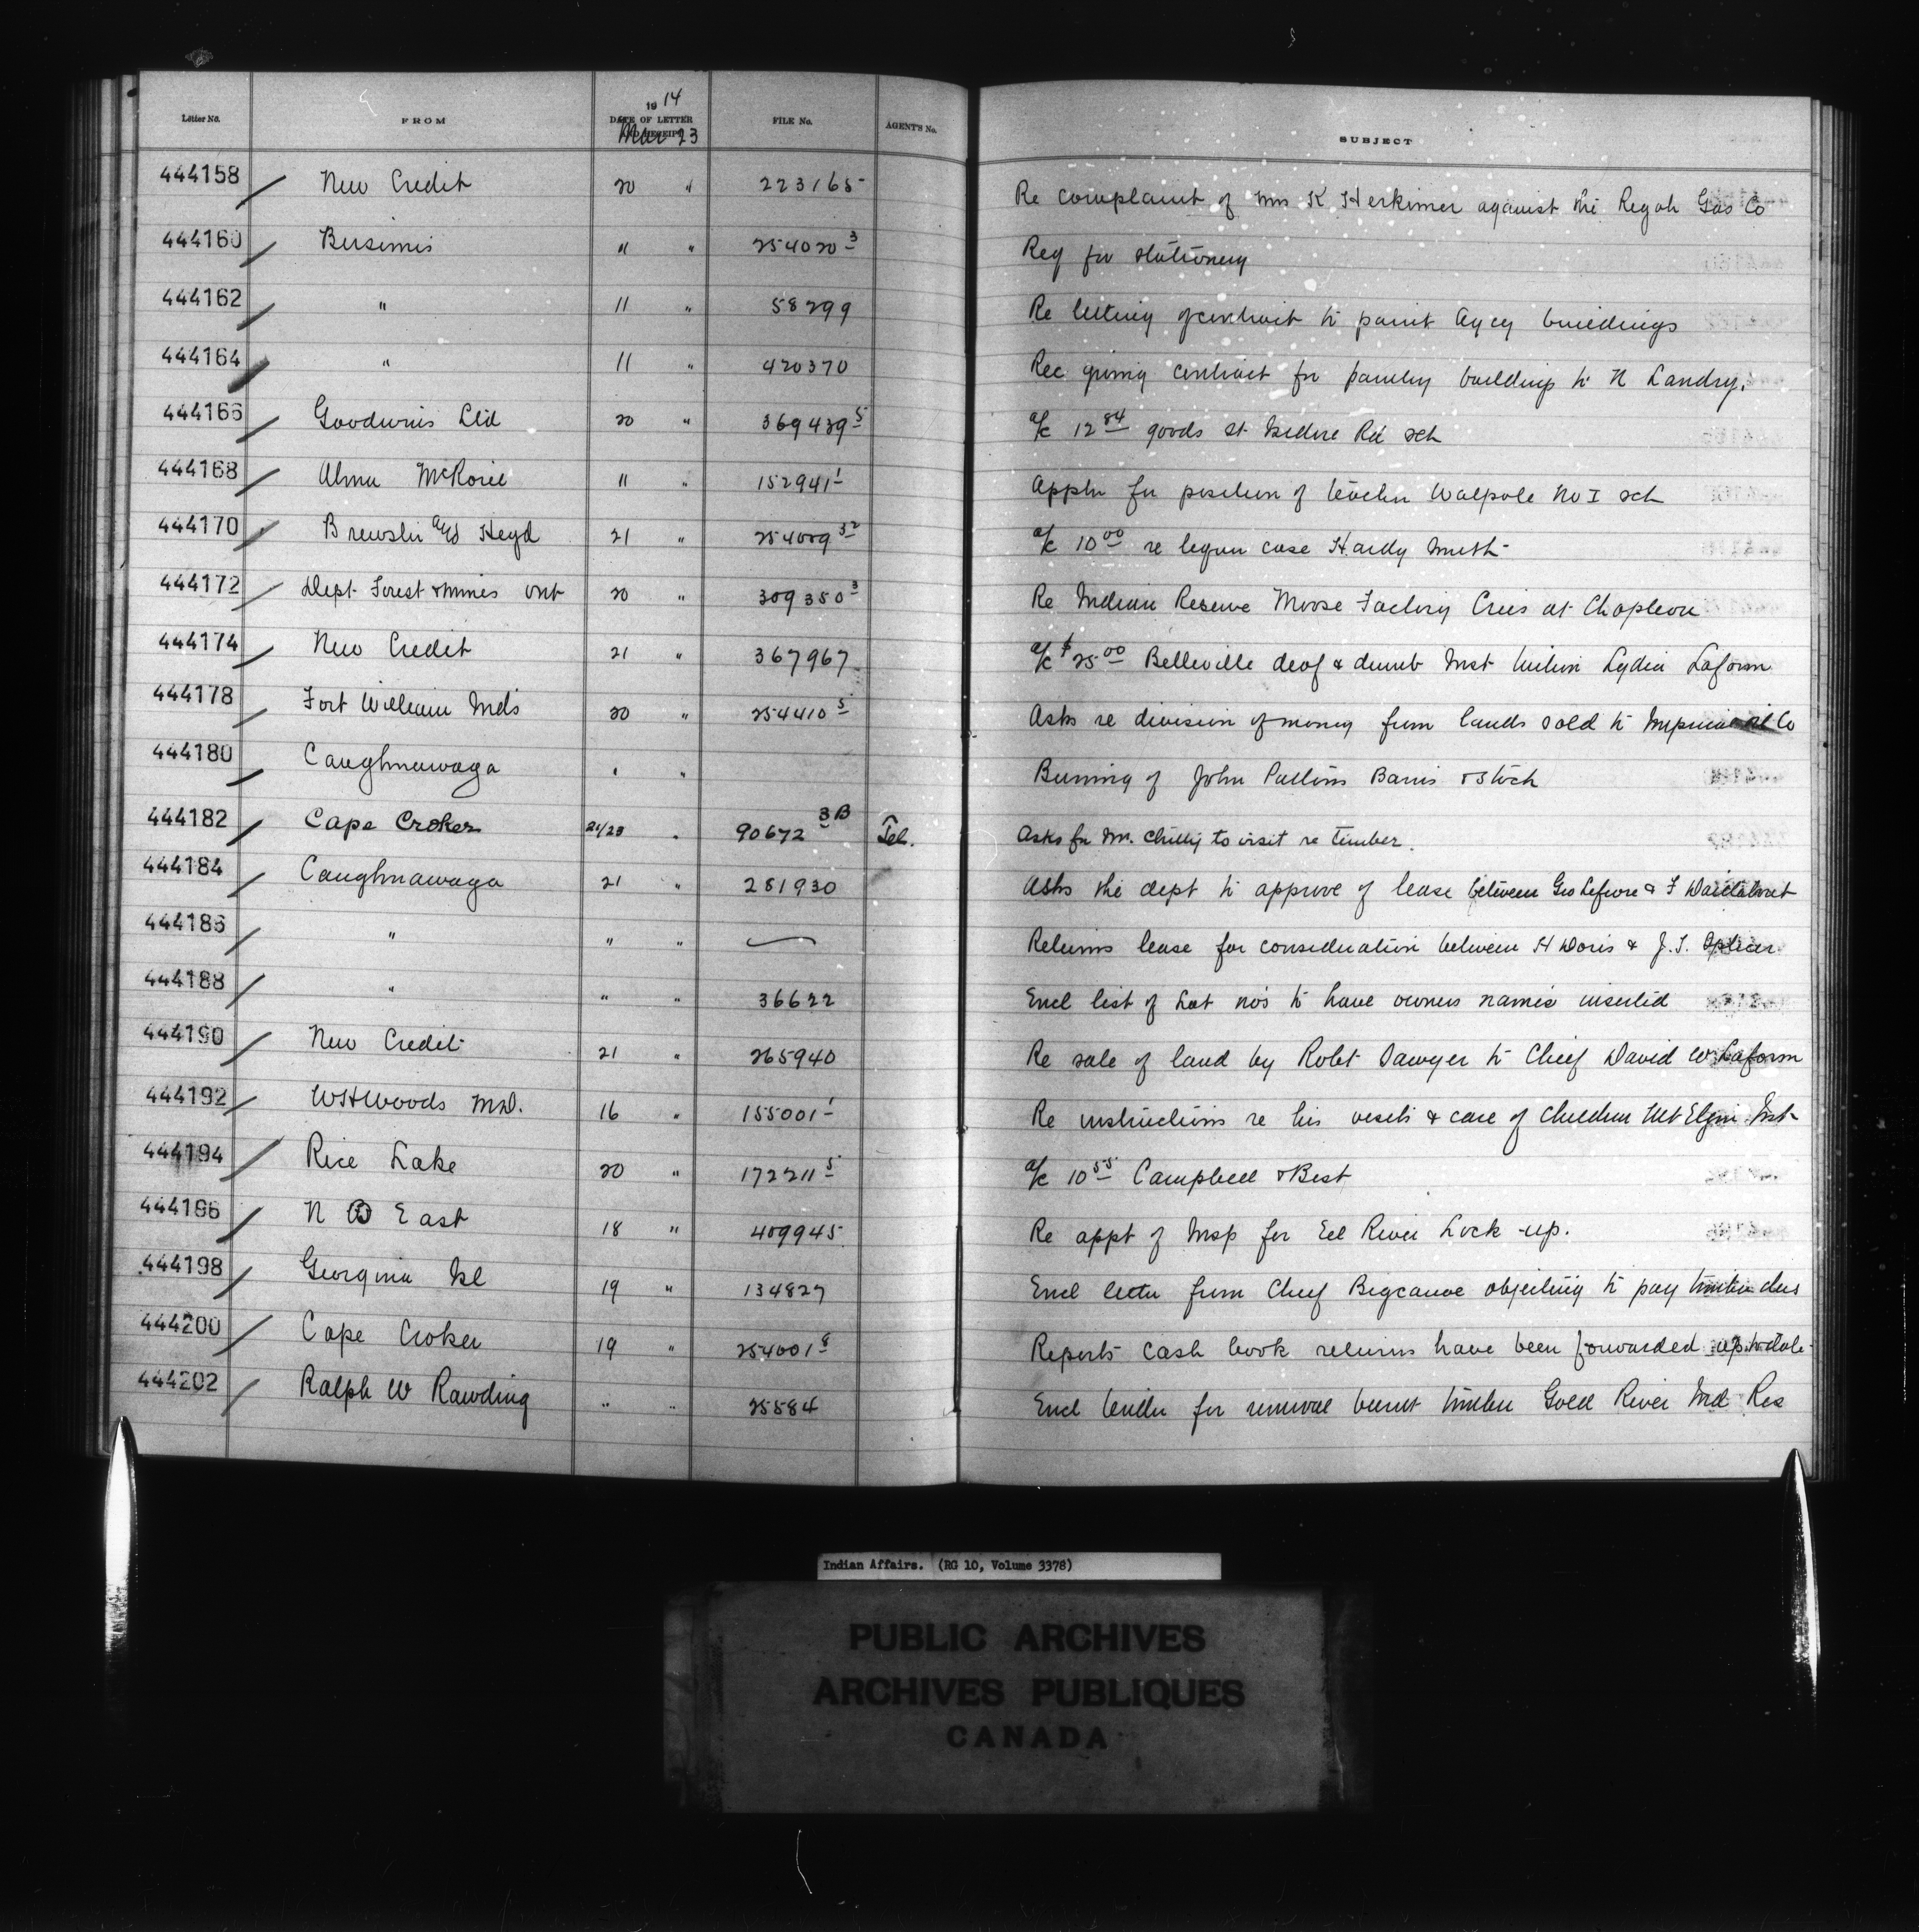 Letter No. FROM 1914 DATE OF LETTER AND RECEIPT Mar 23 FILE No. AGENT'S No. SUBJECT
444158 New Credit 20 " 223165 Re complaint of Mrs K Herkimer against the Gas Co
444160 Bersimis " " 254020 3 Req for stationery
444162 " 11 " 58299 Re letting of contract to paint Agcy buildings
444164 " 11 " 420370 Rec giving contract for buildings to N Landry.
444166 Goodwins Ltd 20 " 369439 5 a/c 12 84 goods St Isidore Rd sch
444168 Alma McRorie " " 152941 1 Appln for position of teacher Walpole No I sch
444170 Brewster and Heyd 21 " 32 a/c 10 00 re liquor case Hardy Smith
444172 Dept Forest & Mines Ont 20 " 309350 3 Re Indian Reserve Moose Factory Crees at Chapleau
444174 New Credit 21 " 367967 a/c $25 00 Belleville deaf & dumb Inst tuition Lydia Laform
444178 Fort William Inds 20 " 254410 5 Asks re division of money from lands sold to Imperial Oil Co
444180 Caughnawaga " " Burning of John Barns & Stock
444182 Cape Croker 21/23 " 90672 3B Tel. Asks for Mr. to visit re timber.
444184 Caughnawaga 21 " 281930 Asks the dept to approve of lease between Geo Lefivre & F
444186 " " " Returns lease for consideration between H & J. T.
444188 " " " 36622 Encl list of Lot nos to have owners names inserted
444190 New Credit 21 " 265940 Re sale of land by Robt Sawyer to Chief David W Laform
444192 W H Woods M.D. 16 " 155001 1 Re instructions re his visits & care of children Mt Elgin Inst
444194 Rice Lake 20 " 172211 5 a/c 10 55 Campbell & Best
444196 N B East 18 " 409945 Re appt of Insp for Eel River Lock-up.
444198 Georgina Isl 19 " 134827 Encl letter from Chief Bigcanoe objecting to pay timber dues
444200 Cape Croker 19 " 254001 Reports cash book returns have been forwarded up to date
444202 Ralph W Rawding " " 25584 Encl tender for removal burnt timber Gold River Ind Res
Indian Affairs. (RG 10, Volume 3378)
PUBLIC ARCHIVES
ARCHIVES PUBLIQUES
CANADA